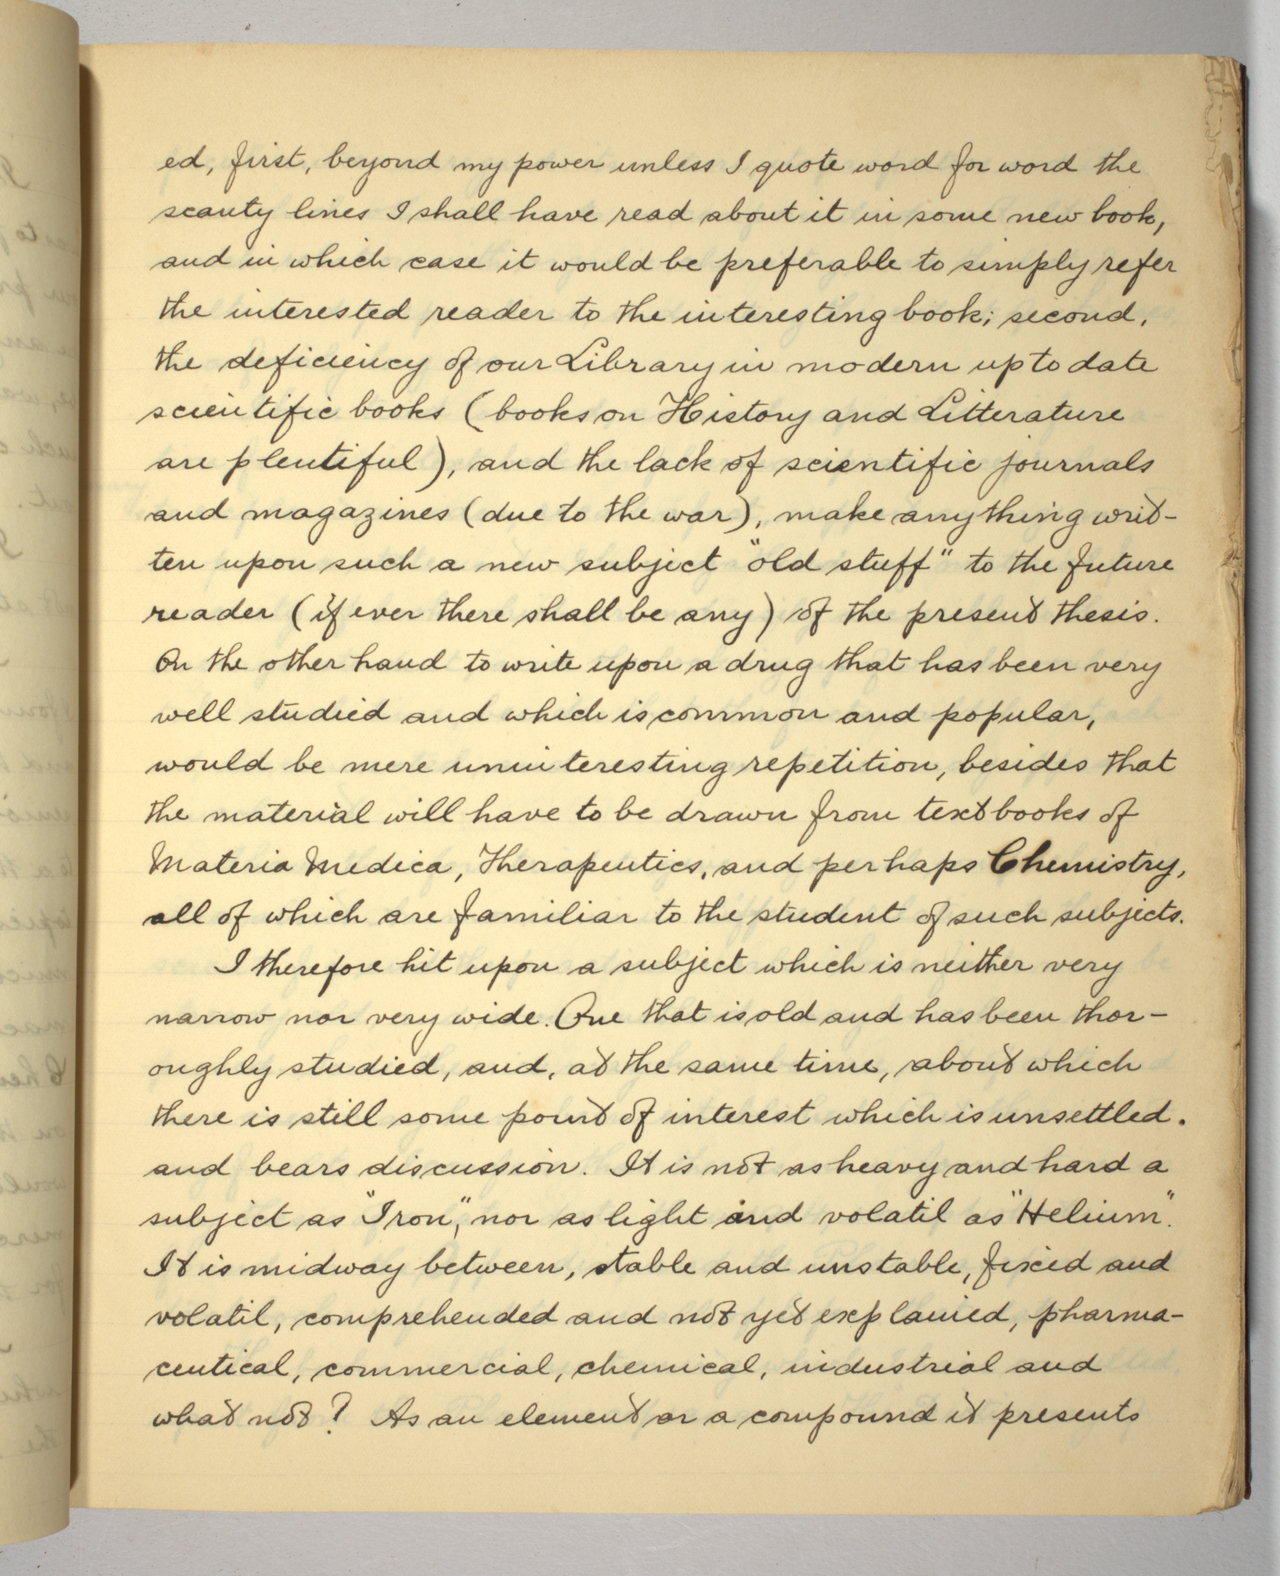 ed, first, beyond my power unless I quote word for word the
scanty lines I shall have read about it in some new book,
and in which case it would be preferable to simply refer
the interested reader to the interesting book; second,
the deficiency of our Library in modern up to date
scientific books (books on History and Litterature
are plentiful), and the lack of scientific journals
and magazines (due to the war), make anything writ-
ten upon such a new subject "old stuff" to the future
reader (if ever there shall be any) of the present thesis.
On the other hand to write upon a drug that has been very
well studied and which is common and popular,
would be mere uninteresting repetition, besides that
the material will have to be drawn from textbooks of
Materia Medica, Therapeutics, and perhaps Chemistry,
all of which are familiar to the student of such subjects.
I therefore hit upon a subject which is neither very
narrow nor very wide. One that is old and has been thor-
oughly studied, and, at the same time, about which
there is still some point of interest which is unsettled.
and bears discussion. It is not as heavy and hard a
subject as "Iron", nor as light and volatil as "Helium".
It is midway between, stable and unstable, fixed and
volatil, comprehended and not yet explained, pharma-
ceutical, commercial, chemical, industrial and
what not? As an element or a compound it presents